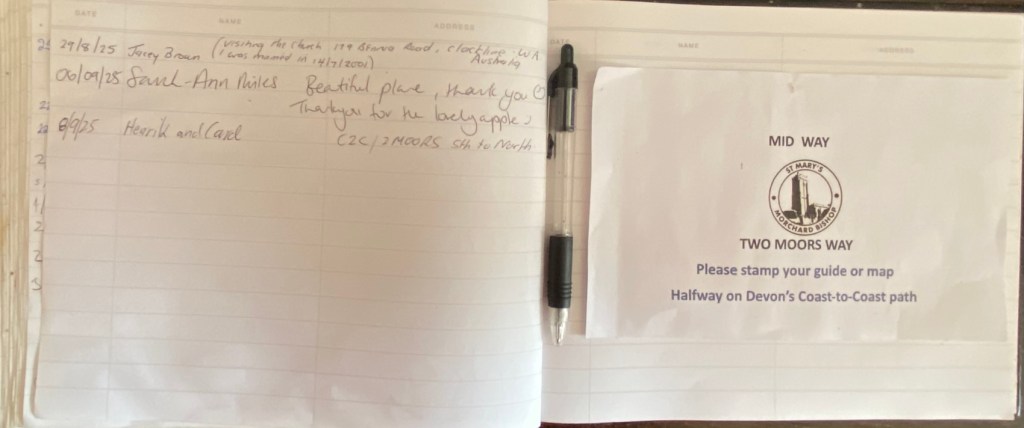 DATE NAME ADDRESS
29/8/25 Jerry Brown (visiting the church Road, WA
I was married in 14/7/2001) Australia
06/09/25 Sarah-Ann Beautiful place, thank you
Thankyou for the lovely apples
8/9/25 Henrik and Carol C2C/2MOORS Sth to North
DATE NAME ADDRESS
MID WAY
ST MARY'S
MORCHARD BISHOP
TWO MOORS WAY
Please stamp your guide or map
Halfway on Devon's Coast-to-Coast path